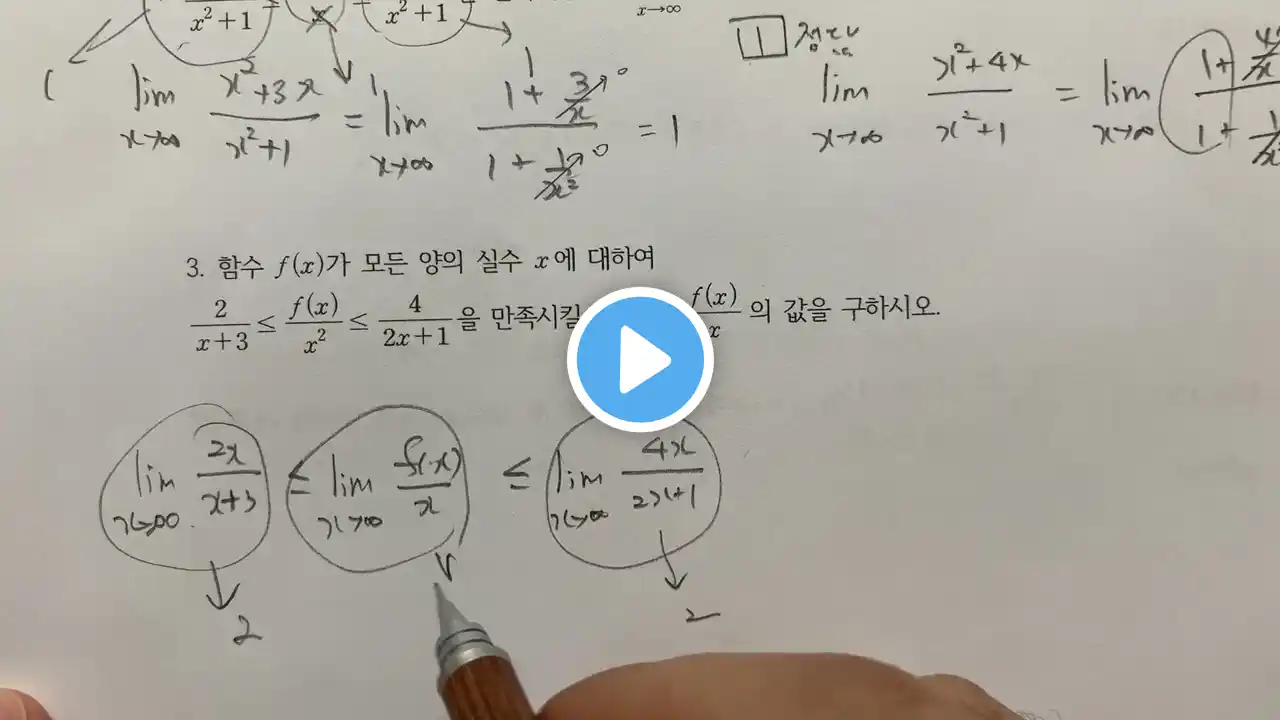 x²+1 x x²+1 x→∞
1 1 1 정리
lim x→∞ x²+3x / x²+1 = lim x→∞ 1 + 3/x 0 / 1 + 1/x² 0 = 1
lim x→∞ x²+4x / x²+1 = lim x→∞ 1 + 4/x / 1 + 1/x²
3. 함수 f(x)가 모든 양의 실수 x에 대하여
2/x+3 ≤ f(x)/x² ≤ 4/2x+1 을 만족시킬 f(x)/x 의 값을 구하시오.
lim x→∞ 2x/x+3 ≤ lim x→∞ f(x)/x ≤ lim x→∞ 4x/2x+1
2 2